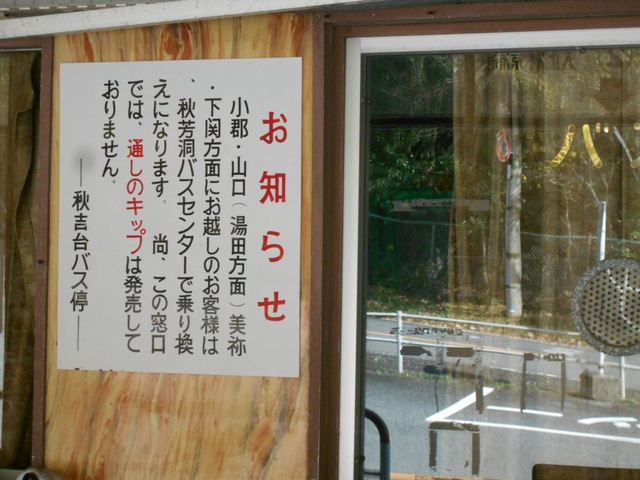 お知らせ
小郡・山口(湯田方面)美祢
・下関方面にお越しのお客様は
、秋芳洞バスセンターで乗り換
えになります。尚、この窓口
では、通しのキップは発売して
おりません。
―秋吉台バス停―
バ